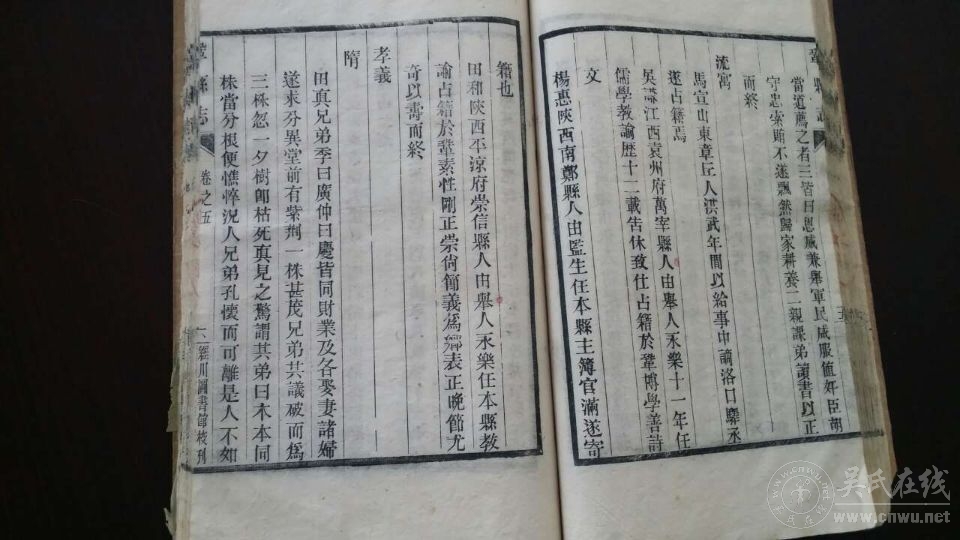 鞏縣志
當道薦之者三皆曰恩威兼舉軍民咸服值奸臣胡
守忠索賄不遂飄然歸家耕養二親課弟讀書以正
而終
流寓
馬宣山東章丘人洪武年間以給事中謫洛口驛丞
遂占籍焉
吳謙江西袁州府萬宰縣人由舉人永樂十一年任
儒學教諭歷十二載告休致仕占籍於鞏博學善詩
文
楊惠陝西南鄭縣人由監生任本縣主簿官滿遂寄
籍也
田和陝西平涼府崇信縣人由舉人永樂任本縣教
諭占籍於鞏素性剛正崇尚節義爲鄉表正晩節尤
奇以壽而終
孝義
隋
田真兄弟季曰廣仲曰慶皆同財業及各娶妻諸婦
遂求分異堂前有紫荆一株甚茂兄弟共議破而爲
三株忽一夕樹卽枯死真見之驚謂其弟曰木本同
株當分根便憔悴況人兄弟孔懷而可離是人不如
鞏縣志
卷之五
六
經川圖書館校刋
吴氏在线
www.cnwu.net